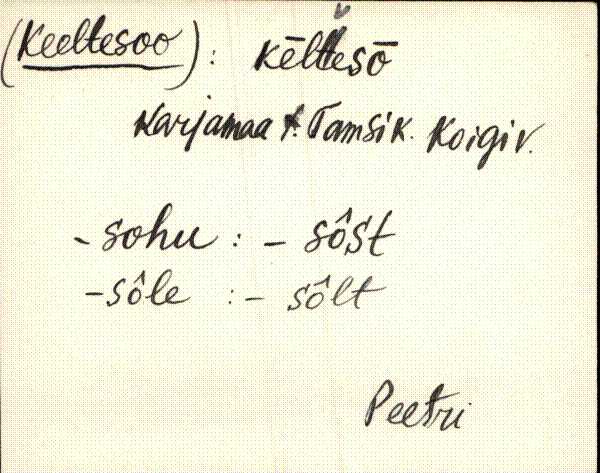 (Keeltesoo): kēl̆tesō
Karjamaa t. Tamsik. Koigi v.
- sohu : - sôst
- sôle : - sôlt
Peetri